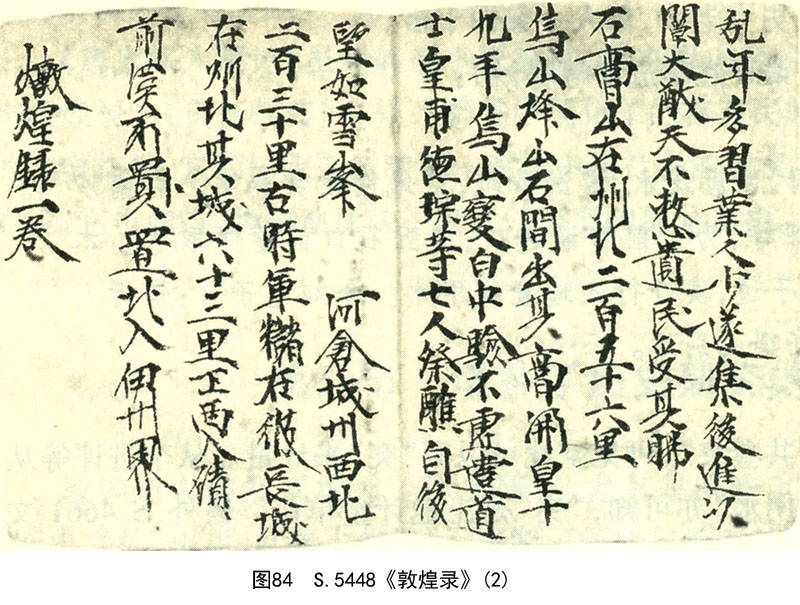 乱年多習業人少遂集後進以
闡大猷天不憗遺民受其賜
石膏山在州北二百五十六里
烏山烽山石間出其膏開皇十
九年烏山變白中驗不虛遣道
士皇甫德琮等七人祭醮自後
望如雪峯 河倉城州西北
二百三十里古時軍儲在彼長城
在州北其城六十三里正西入磧
前漢所置北入伊州界
燉煌錄一卷
图84 S.5448《敦煌录》(2)